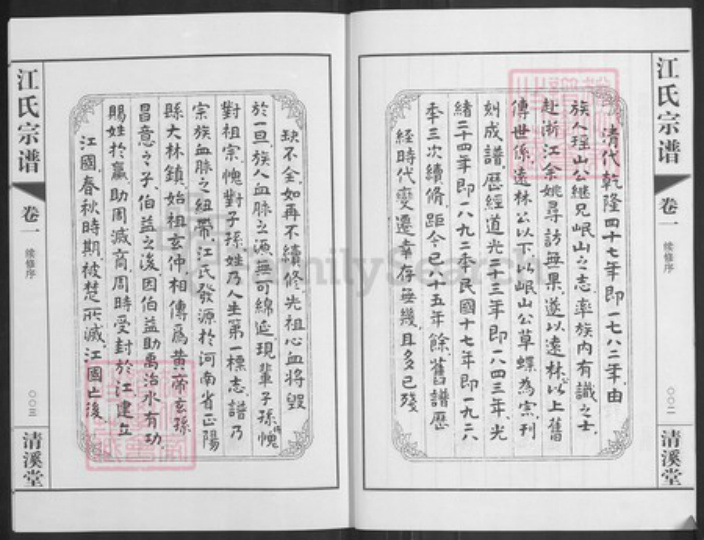 江氏宗谱
卷一
续修序
〇〇二
清溪堂
清代乾隆四十七年即一七八二年.由
族人瑶山公继兄岷山之志.率族内有識之士.
赴浙江余姚尋訪無果.遂以遠林以上舊
傳世係.遠林公以下以岷山公草蝶為宗刊
刻成譜.歷經道光二十三年即一八四三年.光
緒二十四年即一八九二年民國十七年即一九二八
年三次續脩.距今已十五年餘.舊譜歷
経時代變遷幸存無幾.且多已殘
江氏宗谱
卷一
续修序
〇〇三
清溪堂
缺不全.如再不續修.先祖心血將毀
於一旦.族人血脉之源無可綿延.現輩子孫愧
對祖宗.愧對子孫.姓乃人生第一標志.譜乃
宗族血脉之紐帶.江氏發源於河南省正陽
縣大林鎮.始祖玄仲相傳為黄帝玄孫
昌意之子.伯益之後.因伯益助禹治水有功.
賜姓於嬴.助周滅商.周時受封於江.建立
江國.春秋時期.被楚所滅.江國亡後
FamilySearch